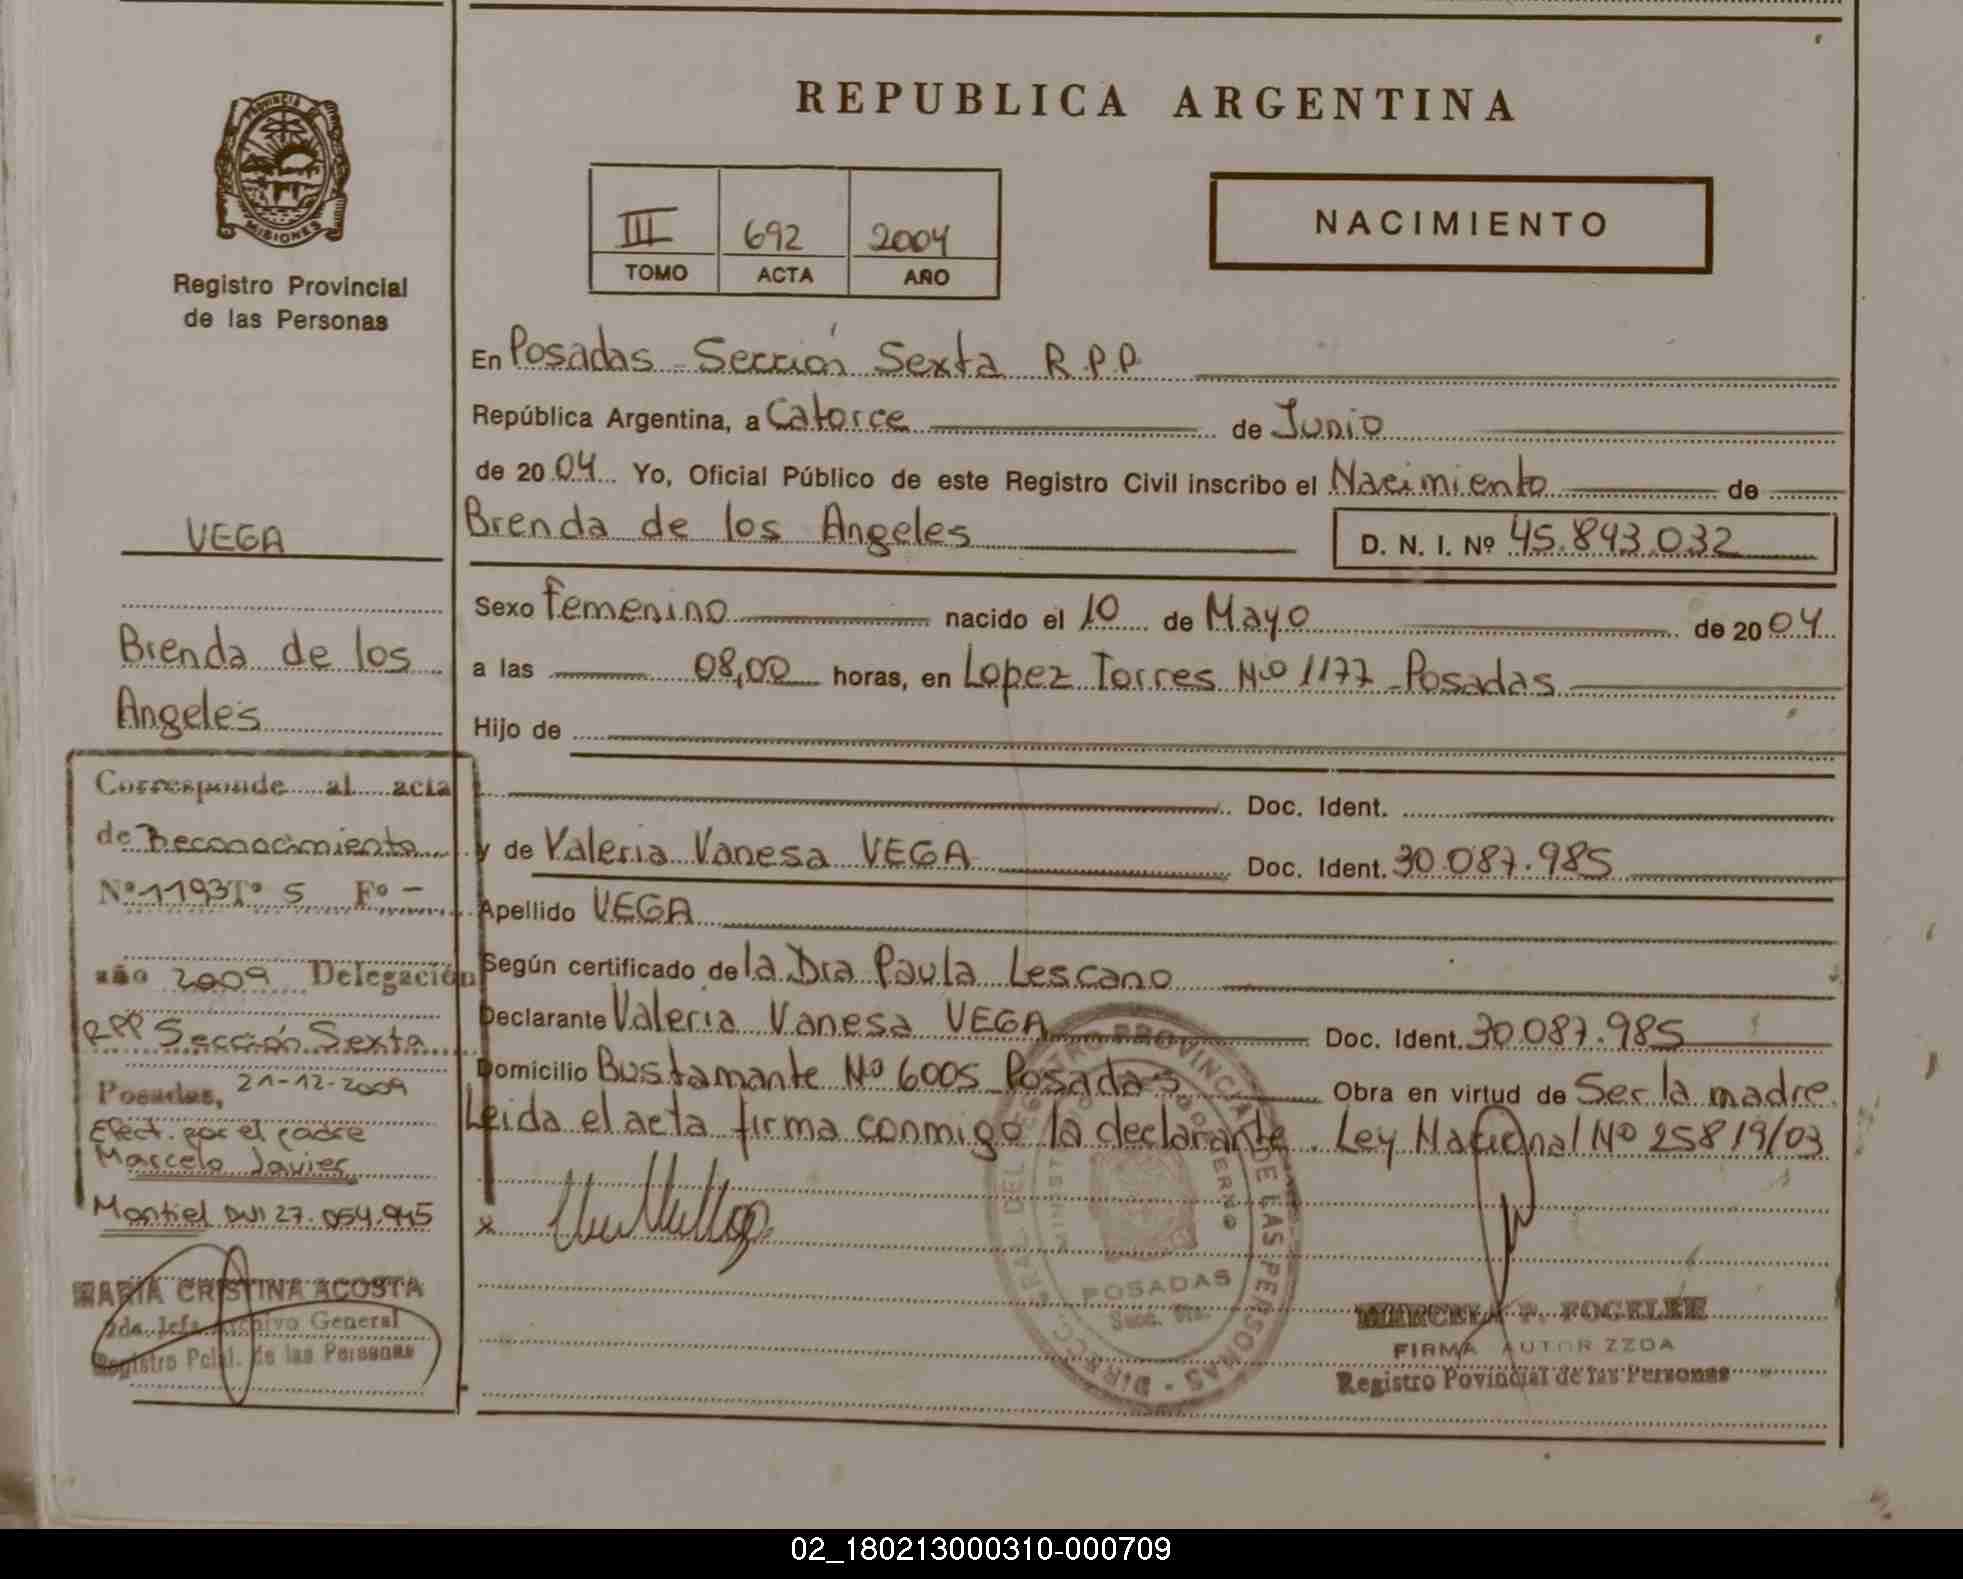 REPUBLICA ARGENTINA
PROVINCIA DE
MISIONES
Registro Provincial
de las Personas
III 692 2004
TOMO ACTA AÑO
NACIMIENTO
En Posadas Sección Sexta R.P.P.
República Argentina, a Catorce de Junio
de 2004 Yo, Oficial Público de este Registro Civil inscribo el Nacimiento de
Brenda de los Angeles D. N. I. Nº 45.843.032
Sexo Femenino nacido el 10 de Mayo de 2004
a las 08,00 horas, en Lopez Torres Nº 1177 Posadas
Hijo de
Doc. Ident.
y de Valeria Vanesa VEGA Doc. Ident. 30.087.985
Apellido VEGA
Según certificado de la Dra Paula Lescano
Declarante Valeria Vanesa VEGA Doc. Ident. 30.087.985
Domicilio Bustamante Nº 6005 Posadas Obra en virtud de Ser la madre
Leida el acta firma conmigo la declarante. Ley Nacional Nº 25819/03
VEGA
Brenda de los
Angeles
Corresponde al acta
de Reconocimiento
Nº 1193 Tº 5 Fº -
año 2009 Delegación
RPP Sección Sexta
Posadas, 21-12-2009
Efect. por el padre
Marcelo Javier
Montiel DNI 27.054.945
MARIA CRISTINA ACOSTA
2da. Jefa Archivo General
Registro Pcial. de las Personas
x
DIRECC. GRAL. DEL REGISTRO PROVINCIAL DE LAS PERSONAS
MINISTERIO DE GOBIERNO
POSADAS
MARCELA P. FOGELER
FIRMA AUTORIZZDA
Registro Povincial de las Personas
02_180213000310-000709